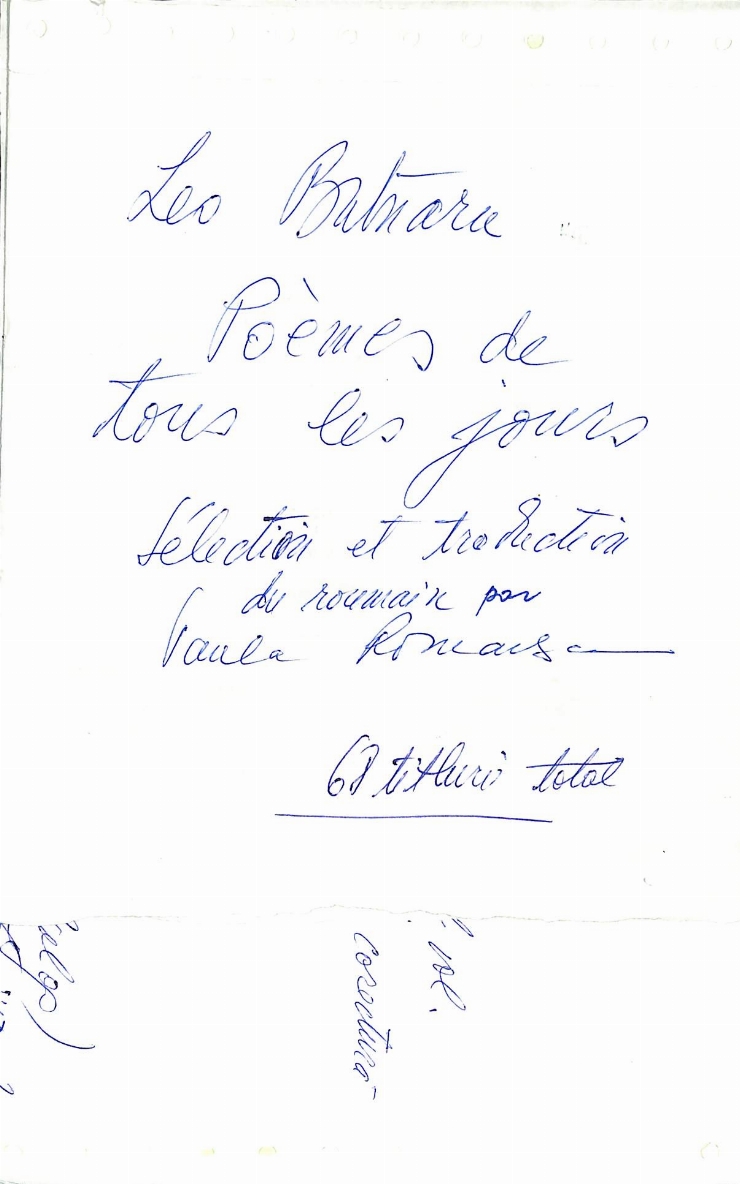 Leo Butnaru
Poèmes de
tous les jours
Sélection et traduction
du roumain par
Paula Romanescu
68 titluri total
vol.
corectură